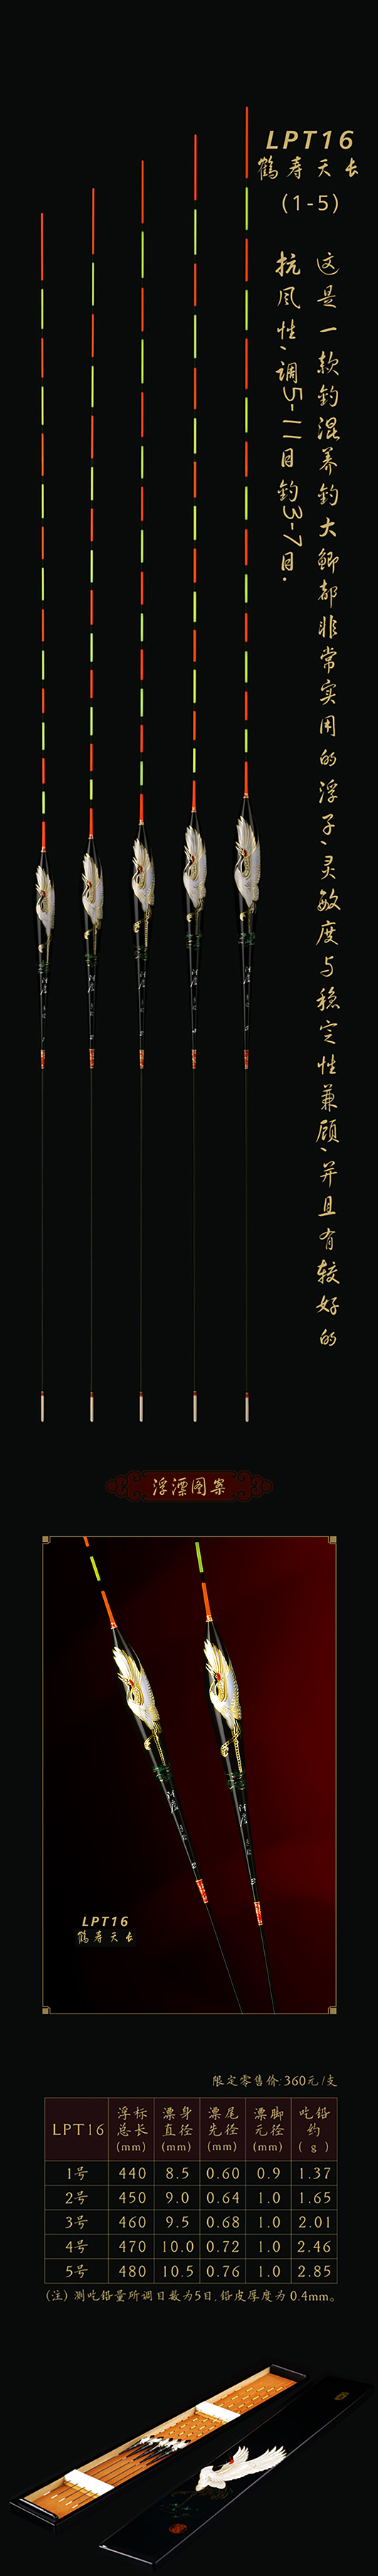 LPT16
鹤寿天长
(1-5)
这是一款钓混养钓大鲫都非常实用的浮子、灵敏度与稳定性兼顾、并且有较好的
抗风性、调5-11目钓3-7目.
浮漂图案
LPT16
鹤寿天长
限定零售价:360元/支
LPT16 浮标总长(mm) 漂身直径(mm) 漂尾先径(mm) 漂脚元径(mm) 吃铅约(g)
1号 440 8.5 0.60 0.9 1.37
2号 450 9.0 0.64 1.0 1.65
3号 460 9.5 0.68 1.0 2.01
4号 470 10.0 0.72 1.0 2.46
5号 480 10.5 0.76 1.0 2.85
(注) 测吃铅量所调目数为5目,铅皮厚度为 0.4mm。